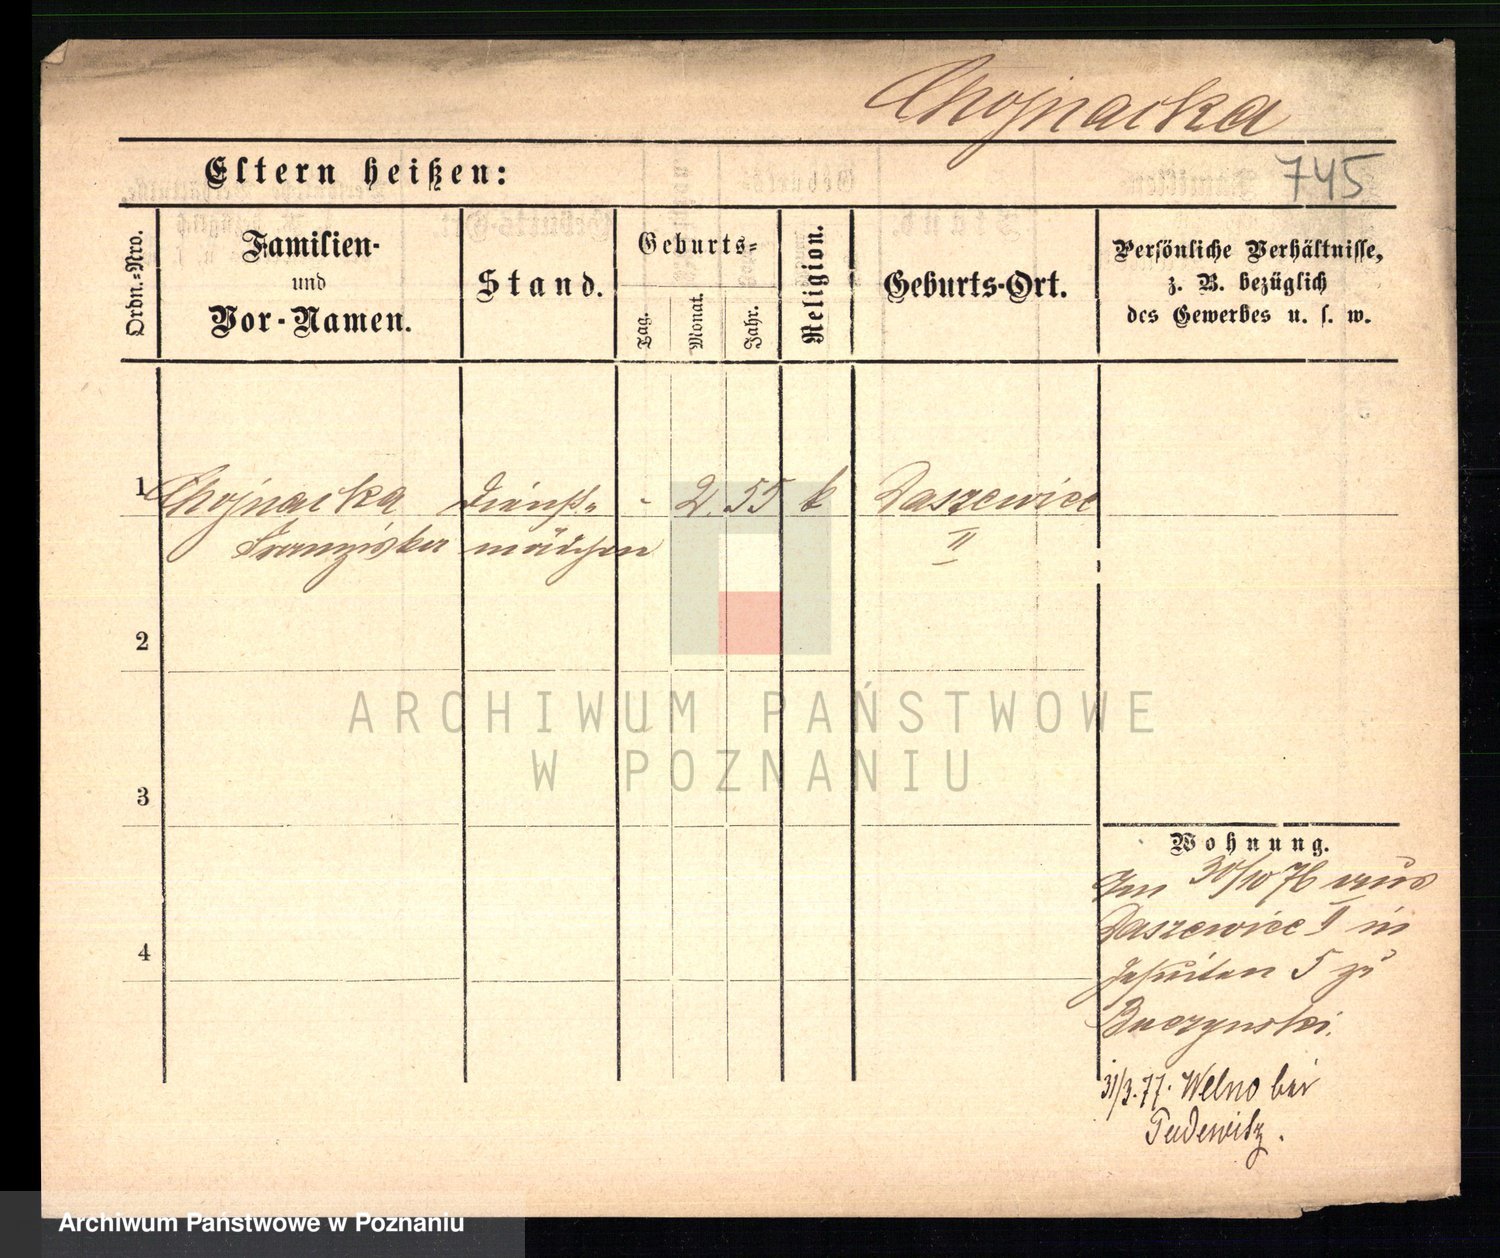 Chojnacka
Eltern heißen:
745
Ordn.-Nro.
Familien-
und
Vor-Namen.
Stand.
Geburts-
Tag.
Monat.
Jahr.
Religion.
Geburts-Ort.
Persönliche Verhältnisse,
z. B. bezüglich
des Gewerbes u. s. w.
1 Chojnacka Dienst- - 2. 55 k Daszewice
Franziska mädchen II
2
3
4
Wohnung.
Im 30/10 76 aus
Daszewice II in
Jesuiten 5 zu
Buczynski.
31/3.77. Welno bei
Pudewitz.
ARCHIWUM PAŃSTWOWE
W POZNANIU
Archiwum Państwowe w Poznaniu